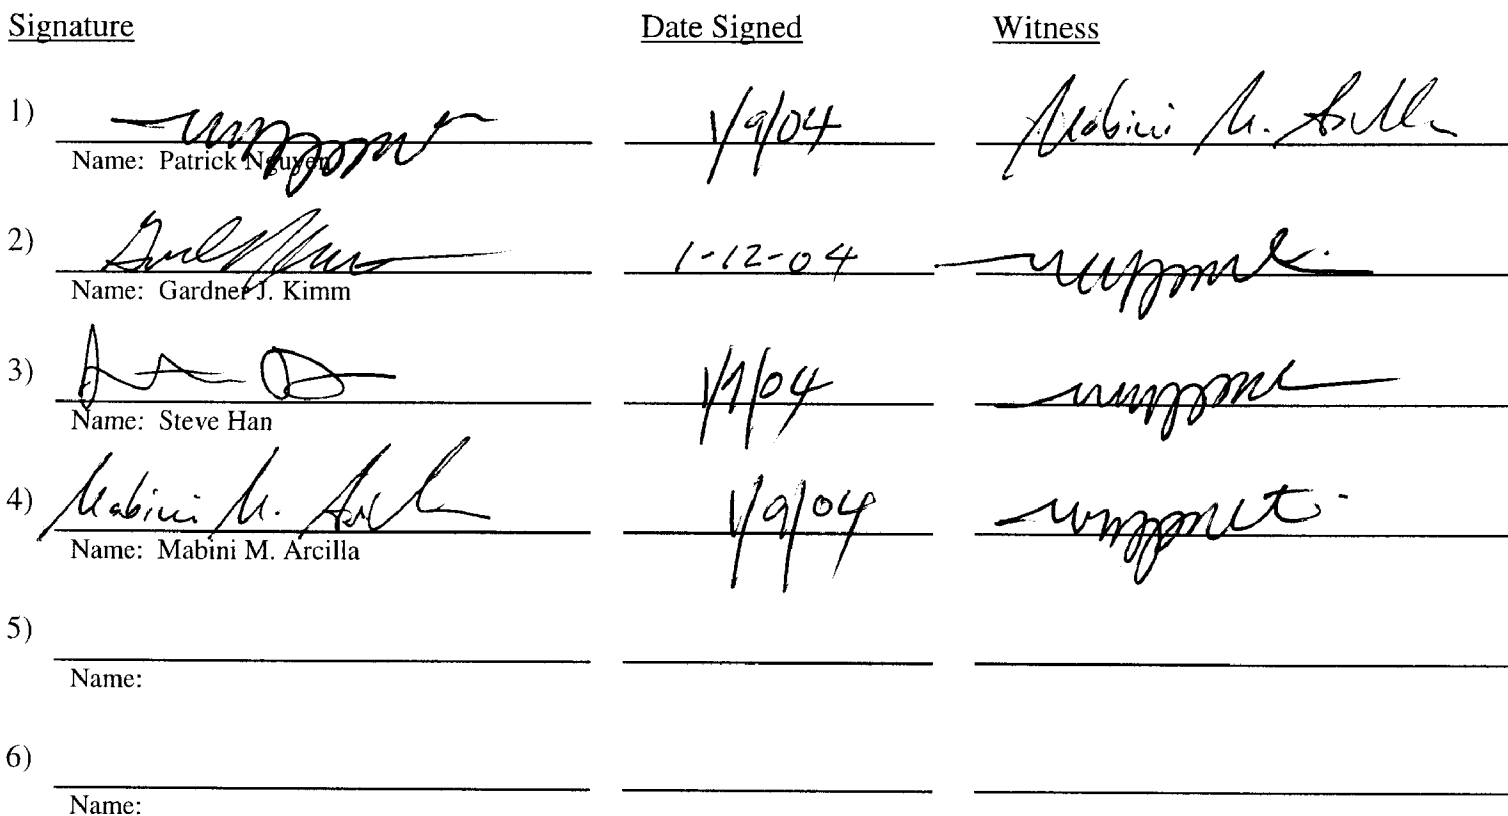 Signature Date Signed Witness
1) 1/9/04 Mabini M. Arcilla
Name: Patrick Nguyen
2) 1-12-04
Name: Gardner J. Kimm
3) 1/9/04
Name: Steve Han
4) Mabini M. Arcilla 1/9/04
Name: Mabini M. Arcilla
5)
Name:
6)
Name: